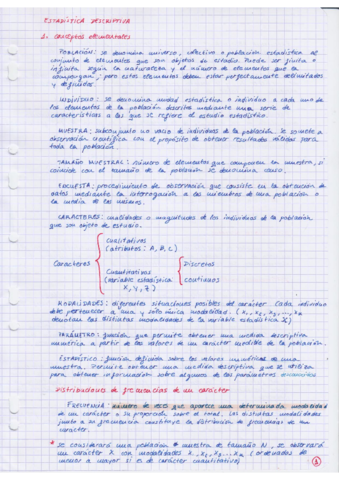 ESTADÍSTICA DESCRIPTIVA
1. Conceptos elementales
POBLACIÓN: se denomina universo, colectivo o población estadística al
conjunto de elementos que son objetos de estudio. Puede ser finita o
infinita según la naturaleza y el número de elementos que la
compongan, pero estos elementos deben estar perfectamente delimitados
y definidos.
INDIVIDUO: se denomina unidad estadística o individuo a cada uno de
los elementos de la población descrita mediante una serie de
características a las que se refiere el estudio estadístico.
MUESTRA: subconjunto no vacío de individuos de la población se somete a
observación científica con el propósito de obtener resultados válidos para
toda la población.
TAMAÑO MUESTRAL: número de elementos que componen la muestra, si
coincide con el tamaño de la población se denomina censo.
ENCUESTA: procedimiento de observación que consiste en la obtención de
datos mediante la interrogación a los miembros de una población o
la media de los mismos.
CARACTERES: cualidades o magnitudes de los individuos de la población
que son objeto de estudio.
Cualitativos
(atributos: A, B, C)
Caracteres
Discretos
Cuantitativos
(variable estadística
continuos
X, Y, Z)
MODALIDADES: diferentes situaciones posibles del carácter. Cada individuo
debe pertenecer a una y sólo única modalidad. (x₁, x₂, x₃, ... xₙ
denotan las distintas modalidades de la variable estadística X)
PARÁMETRO: función que permite obtener una medida descriptiva
numérica a partir de los valores de un carácter medible de la población.
ESTADÍSTICO: función definida sobre los valores numéricos de una
muestra. Permite obtener una medida descriptiva que se utiliza
para obtener información sobre algunos de los parámetros
Distribuciones de frecuencias de un carácter
FRECUENCIA: número de veces que aparece una determinada modalidad
de un carácter o su proporción sobre el total. Las distintas modalidades
junto a su frecuencia constituye la distribución de frecuencias de un
carácter.
* Se considerará una población o muestra de tamaño N, se observará
un carácter X con modalidades x₁, x₂, ... xₙ (ordenados de
menor a mayor si es de carácter cuantitativo)
1